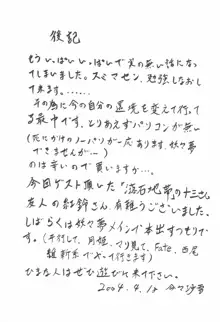 後記
もういっぱいいっぱいで実の無い話になっ
てしまいました。スミマセン、勉強しなおし
て来ます.......
その為に今の自分の環境を変えて行って
る最中です、とりあえずパソコンが無い
(だにかけのノーパソが一応あります、妖々夢
できませんが...)
のは辛いので買いますか...
今回ゲスト頂いた「道石地
の十三さん
友人の
さん、有難うございました。
しばらくは妖々夢メインで本出すつもりです。
(平行して、月姫、マリ見て、Fate、西尾
維新系でやって行きます)
ひまな人はぜひ遊びに来て下さい。
2004.4.18